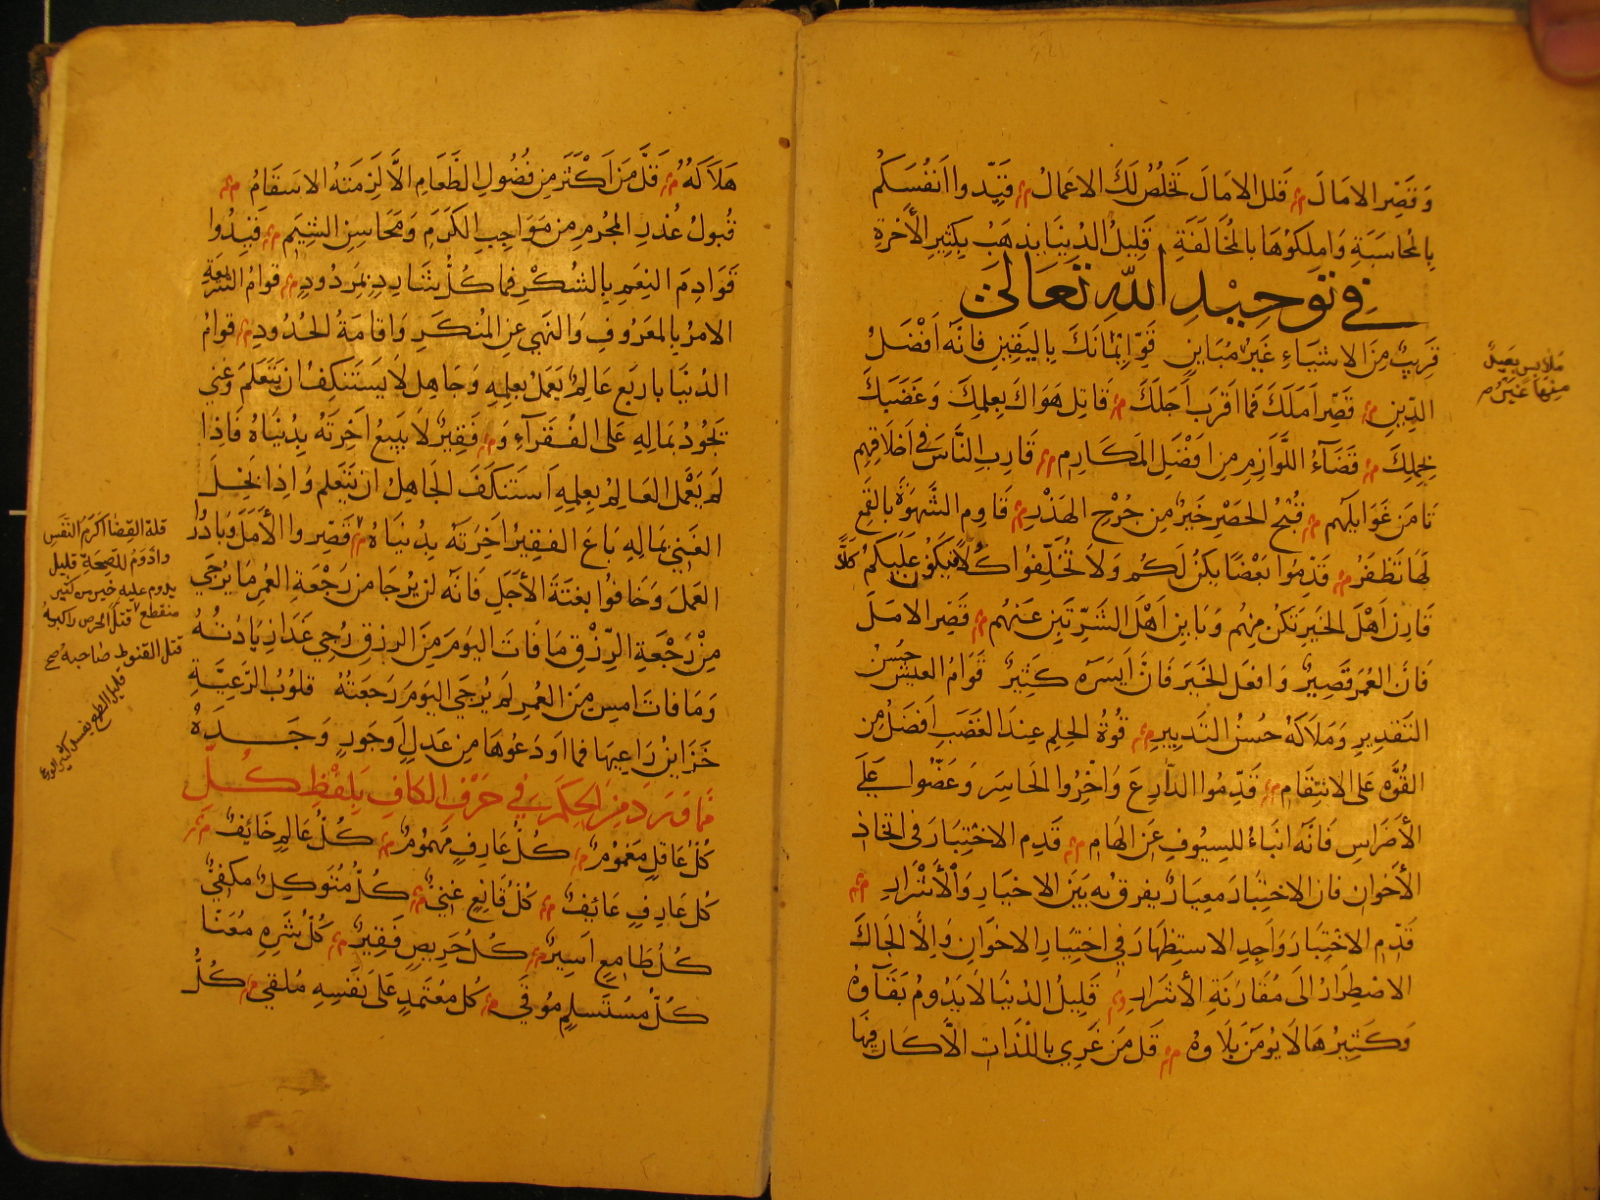 وَقَصِّرِ الامَالَ قلل الامَالَ تَخلُصُ لَكَ الاعمالُ قَيِّدوا اَنفُسَكُم
بالمُحاسَبَةِ وَامِلكوُهَا بالمُخَالَفَةِ قَلِيلُ الدُنيَا يذهَبُ بِكَثِيرِ الأَخرةِ
في توحيدِ اللّه تعَالىَ
قرِيبٌ مِنَ الاشيَاءِ غَيرُ مُبَاينٍ قَوِّ اِيمَانَكَ بِاليَقينِ فانَّه اَفضَلُ
الدِّينِ قَصِّر اَمَلَكَ فمَا اقرَبَ اَجَلَكَ قاتِل هَوَاكَ بِعِلمِكَ وَغَضَبَكَ
بحِلمِكَ قَضَآءُ اللَّوَازِمِ مِن افضَلِ المَكَارِمِ قَارِبِ النَّاسَ فى اَخلَاقِهِم
تَامَن غَوَايِلَهم قُبْحُ الحَصْرِ خَيرٌ مِن جُرْحِ الهَذْرِ قَاوِمِ الشَّهوَةَ بالقَمعِ
لهَا تَظفَرُ قَدِّمُوا بَعْضًا يكُنْ لَكُم وَلاَ تُخَلِّفُوا كُلاًّ فيَكوُن عَلَيكُم كلاًّ
قَارِن اَهْلَ الخَيرِ تَكُن مِنهُم وَبَاين اَهْلَ الشَّرِّ تَبِن عَنهُم قَصِّرِ الامَلَ
فَانَّ العُمرَ قَصِيرٌ وَافعَلِ الخَيرَ فَانَّ اَيسَرَه كثِيرٌ قَوَامُ العَيشِ حُسْنُ
التَقدِيرِ وَمَلاَكُهُ حُسْنُ التَدبِيرِ قُوَّةُ الحِلمِ عِندَ الغَضَبِ اَفضَلُ مِن
القُوَّه عَلى الانتِقَامِ قَدِّمُوا الدَّارِعَ وَاَخِّرُوا الحَاسِرَ وَعَضُّوا عَلَى
الأضرَاسِ فَانَّه انبَاءٌ للسيُوفِ عَنِ الهَامِ قَدِم الاختِبَارَ فى اتخاذ
الأخوان فان الاختِبَارَ معيَارٌ يفرق به بَيَن الاخيَارِ وَالأشرَارِ
قَدِّمِ الاختِبَارَ وَاجِدِ الاستِظهَارَ في اختِبَارِ الاخوَانِ وَاِلاَّ الجَاكَ
الاضطِرَارُ الَى مُقَارَنَةِ الأشرَارِ قَلِيلُ الدُنيَا لاَ يَدُومُ بَقَآوُهُ
وَكثِيرُهَا لاَ يُومَنُ بَلَاوهُ قَل مَن غَرِي باللذَات الاَّ كَان فِيهَا
ملابس بعيدٌ
منها غير
هَلاَكَهُ قَلَّ مَن اَكثَرَ مِن فُضُولِ الطَّعَامِ الاَّ لَزِمَتهُ الاسقَامُ
قُبولُ عُذرِ المجُرمِ من مَوَاجِبِ الكَرَمِ وَمحَاسِنِ الشِيَمِ قَيِدُوا
قَوَادِمَ النِعَمِ بالشُكْرِ فمَا كُلُّ شَارِدٍ بمَردُودٍ قوامُ الشَريعَةِ
الامرُ بالمعَرُوفِ وَالنهَي عِن المُنكَرِ وَاقَامَةُ الحُدُودِ قوامُ
الدُنيَا باربَع عَالِمٌ يَعمَلُ بعِلمِهِ وَجَاهِل لاَ يَستَنكِفُ ان يَتَعَلَّمَ وَغني
تجُودُ بمَالِهِ عَلى الفُقَرآءِ وَفَقِيرٌ لاَ يَبِيعُ اَخِرَتَه بِدُنيَاهُ فَاِذَا
لَم يَعْمَل العَالِمُ بِعِلمِهِ اَستَنكَفَ الجَاهِلُ ان يَتَعَلم وَاذِا بَخِلَ
الغَنيّ بمَالِهِ بَاعَ الفقِيرُ اخَرتَهُ بِدُنيَاهُ قَصِّروا الأَمَلَ وَبَادرُوا
العَمَلَ وَخَافوُا بغتَةَ الأَجَلِ فَانَّه لَن يرُجَا مِن رَجْعَةِ العُمرِ مَا يُرجَي
مِنْ رَجعَةِ الرِّزقِ مَا فَاتَ اليَومَ مِنَ الرزقِ رُجِي غَدًا زِيَادتُهُ
وَمَا فاتَ امسِ مِنَ العُمرِ لَم يُرجَي اليَومَ رَجعَتُهُ قلوُبُ الرَّعِيَّةِ
خَزَاينُ رَاعِيهَا فمَا اودَعُوهَا مِن عَدلٍ اَوجَورٍ وَجَدَهُ
ممَّا وَرَدَ مِنَ الحِكَمِ في حَرفِ الكافِ بِلَفْظِ كُلّ
كُلُّ عَاقلٍ مَغمُومٌ كُلُّ عَارِفٍ مَهمُومٌ كُلُّ عَالِمٍ خَايفٌ
كُل عَارِفٍ عَائِفٌ كُلُّ قَانِعٍ غَنيٌّ كُلُّ مُتَوَكِلٍ مَكفِيٌّ
كُلُّ طَامِعٍ اَسِيرٌ كُلُّ حَرِيصٍ فَقِيرٌ كُلُّ شَرِهٍ مُعَنًّا
كُلُّ مُستَسلمٍ مُوقي كل مُعتَمدٍ عَلى نَفسِهِ مُلقي كُلُّ
قلة القضا اكرم النفس
وادوم للصحة قليل
يدوم عليه خير من كثير
منقطع قتل الحرص راكبه
قتل القنوط صاحبه صح
قليل الطمع يفسد كثير الورع